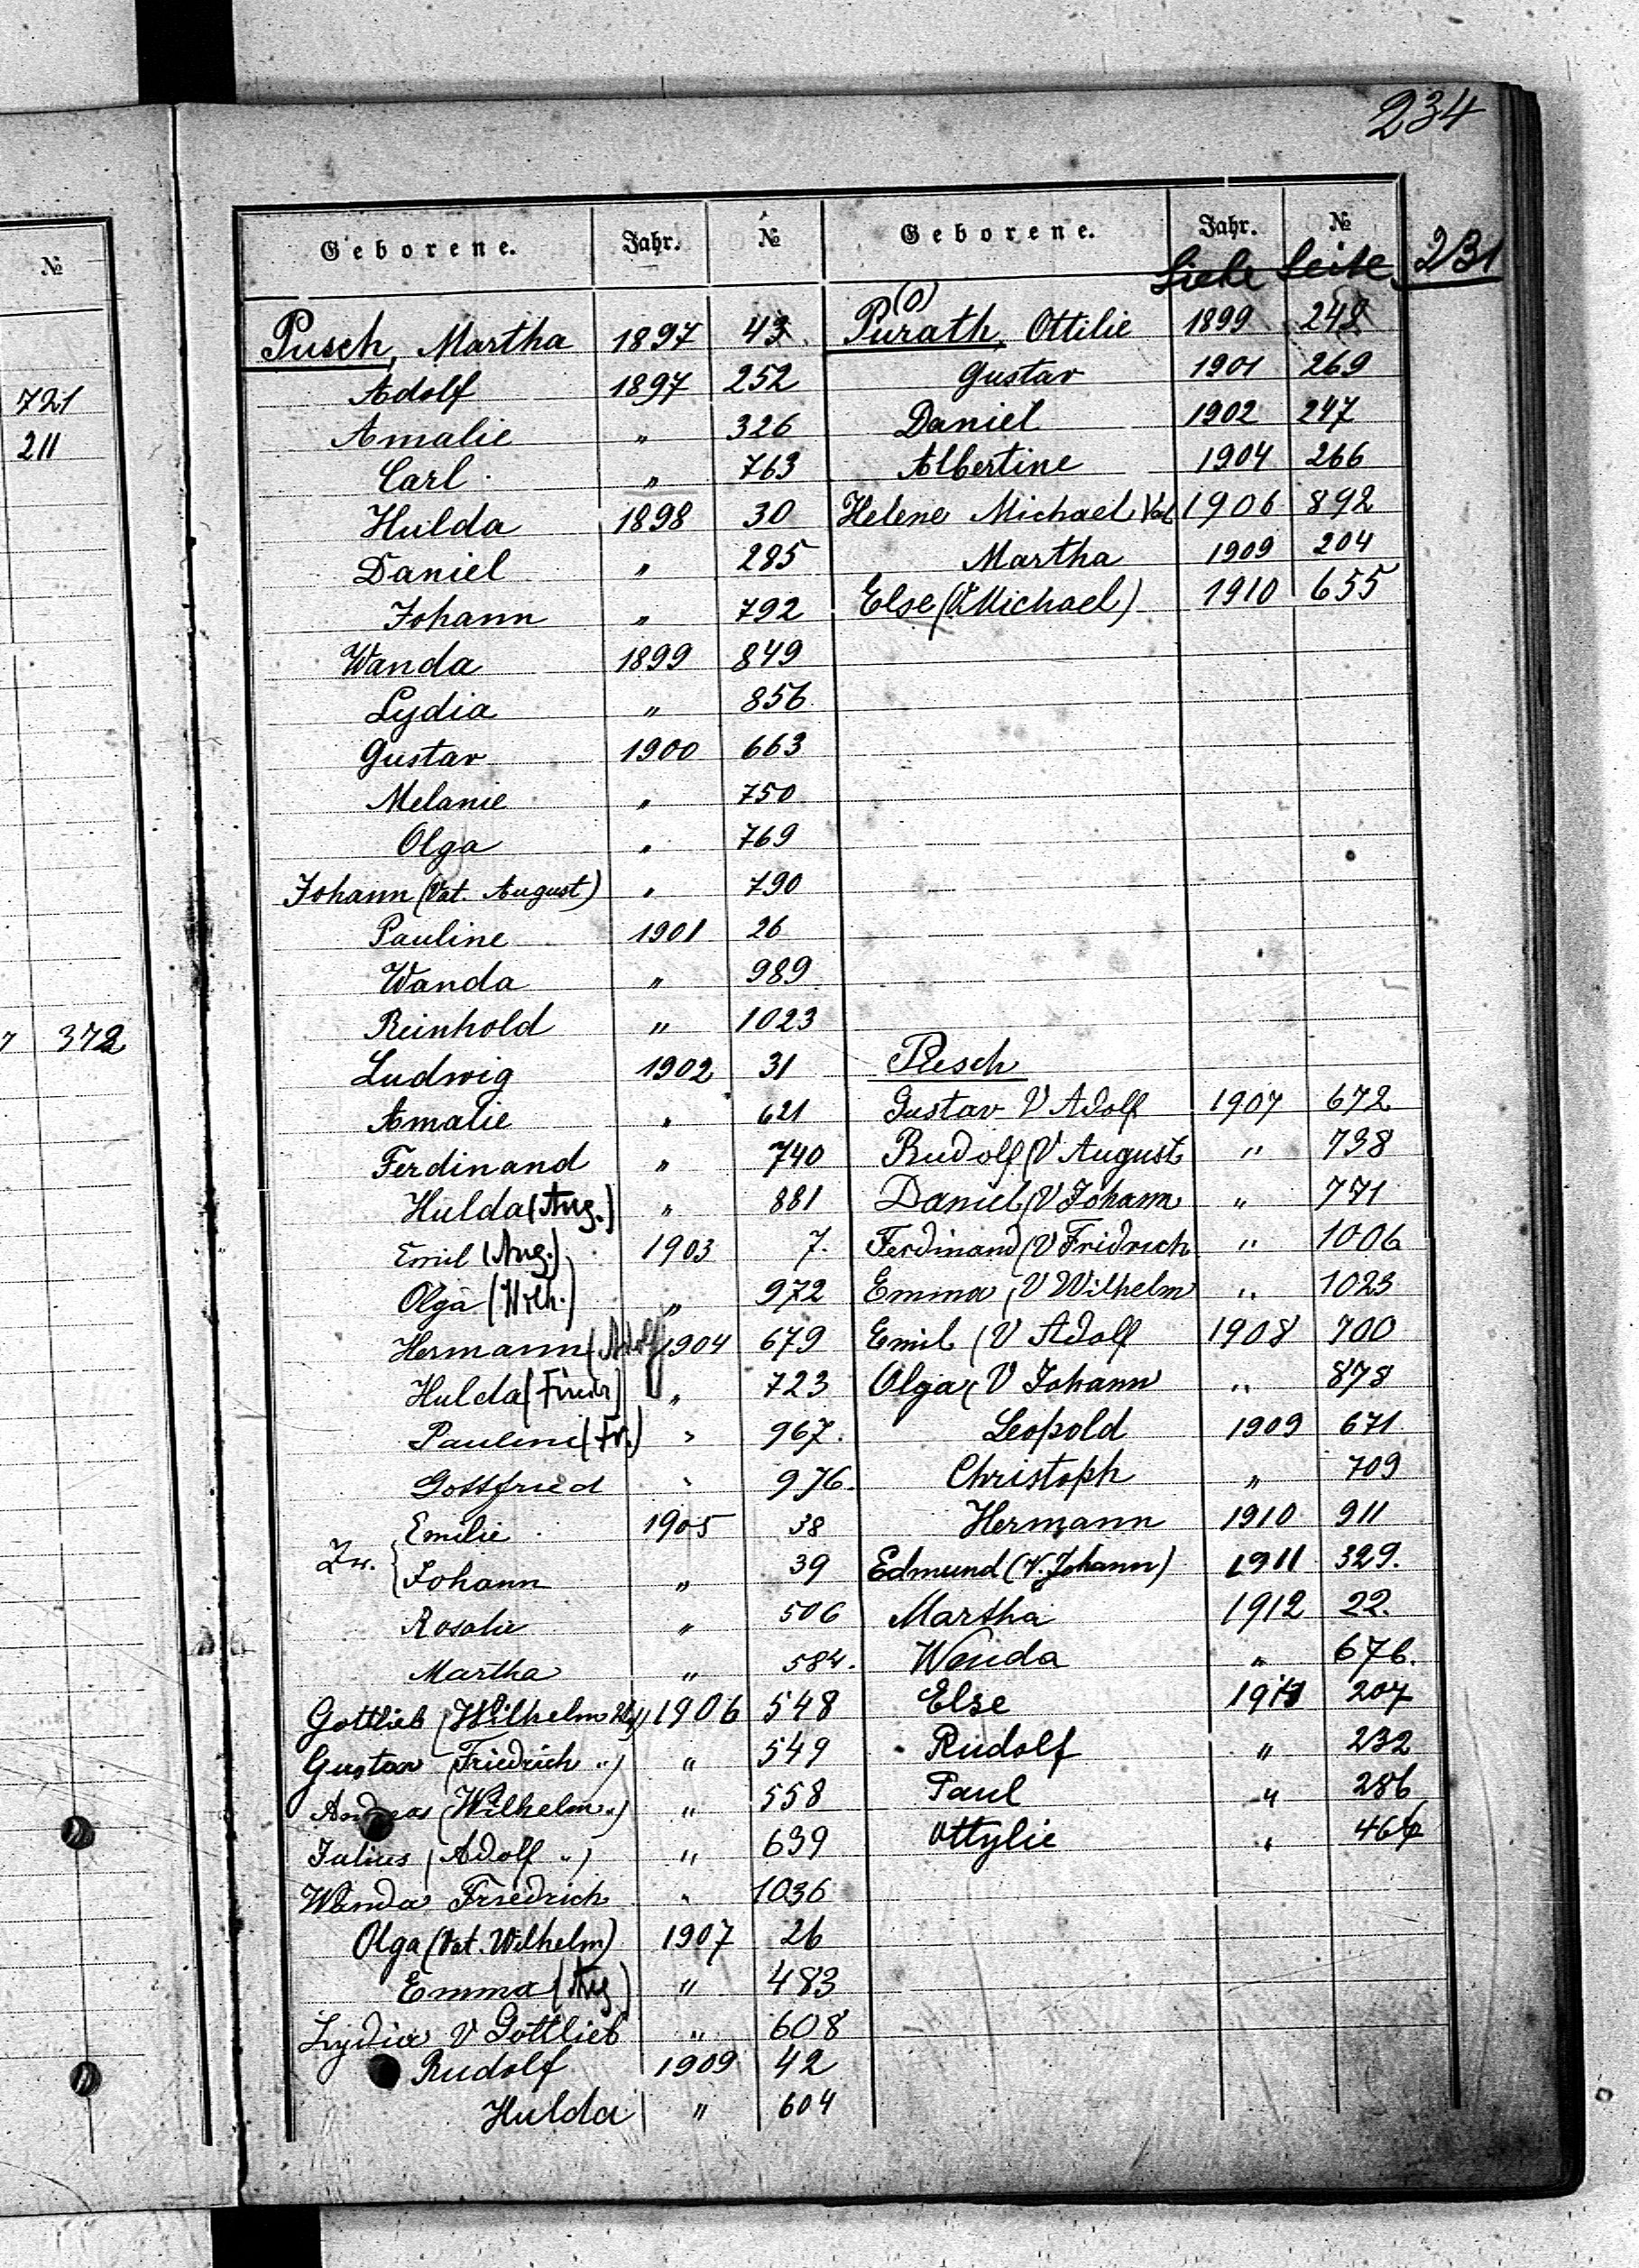 234
№
721
211
7 372
Geborene. Jahr. №
Pusch, Martha 1897 43.
Adolf 1897 252
Amalie " 326
Carl " 763
Hulda 1898 30
Daniel " 285
Johann " 792
Wanda 1899 849
Lydia " 856
Gustav 1900 663
Melanie " 750
Olga " 769
Johann (Vat. August) " 790
Pauline 1901 26
Wanda " 989
Reinhold " 1023
Ludwig 1902 31
Amalie " 621
Ferdinand " 740
Hulda (Aug.) " 881
Emil (Aug.) 1903 7.
Olga (Wilh.) " 972
Hermann (Adolf) 1904 679
Hulda (Friedr) " 723
Pauline (Fr.) " 967.
Gottfried " 976.
Emilie 1905 38
Zw. { Johann " 39
Rosalie " 506
Martha " 584.
Gottlieb (Wilhelm 1906 548
Gustav (Friedrich ") " 549
Andreas (Wilhelm ") " 558
Julius (Adolf ") " 639
Wanda Friedrich " 1036
Olga (Vat. Wilhelm) 1907 26
Emma (Aug) " 483
Lydia V Gottlieb " 608
Rudolf 1909 42
Hulda " 604
Geborene. Jahr. №
Siehe Seite 231
(o)
Purath, Ottilie 1899 248
Gustav 1901 269
Daniel 1902 247
Albertine 1904 266
Helene Michael Vat 1906 892
Martha 1909 204
Else (V. Michael) 1910 655
Pusch
Gustav V Adolf 1907 672
Rudolf (V August " 738
Daniel (V Johann " 771
Ferdinand (V Fridrich " 1006
Emma (V Wilhelm " 1023
Emil (V Adolf 1908 700
Olga (V Johann " 878
Leopold 1909 671
Christoph " 709
Hermann 1910 911
Edmund (V. Johann) 1911 329.
Martha 1912 22.
Wanda " 676.
Else 207
Rudolf " 232
Paul " 286
Ottylie "